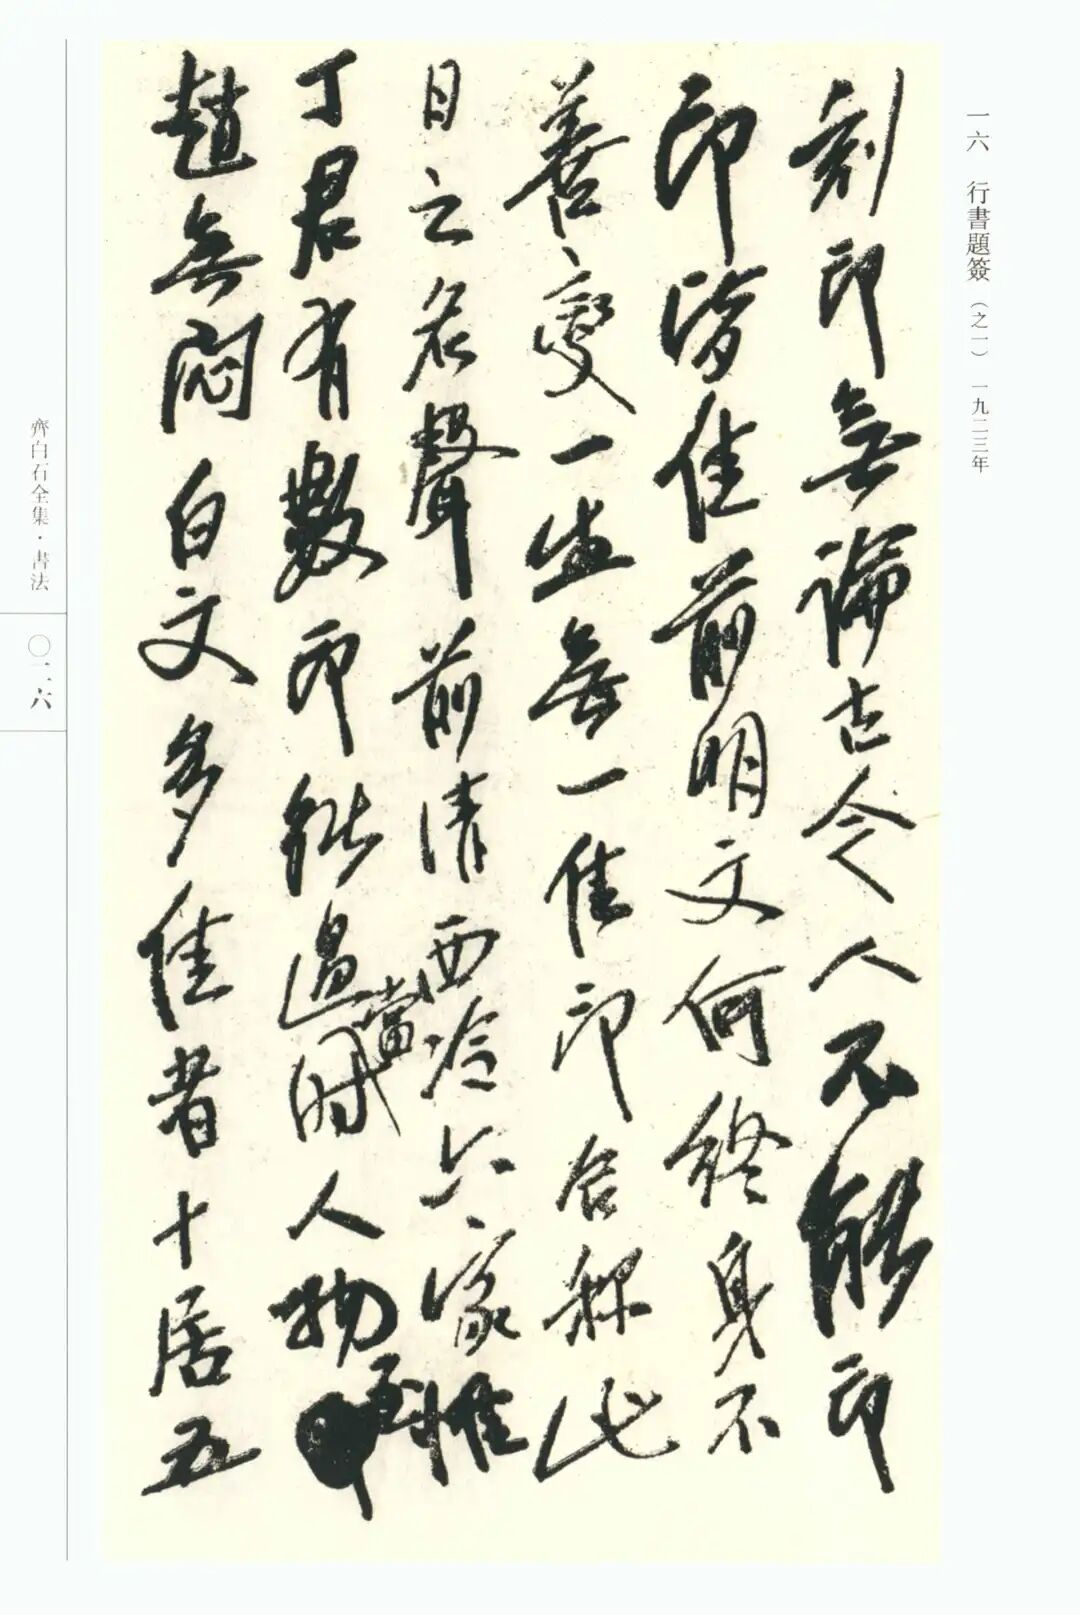 一六　行書題簽（之一）　一九二三年
刻印無論古今人不能印
印皆佳前明文何終身不
善變一生無一佳印合稱此
日之名聲前清西泠六家惟
丁君有數印能過當時人物至
趙無悶白文多佳者十居五
齊白石全集·書法
〇一六